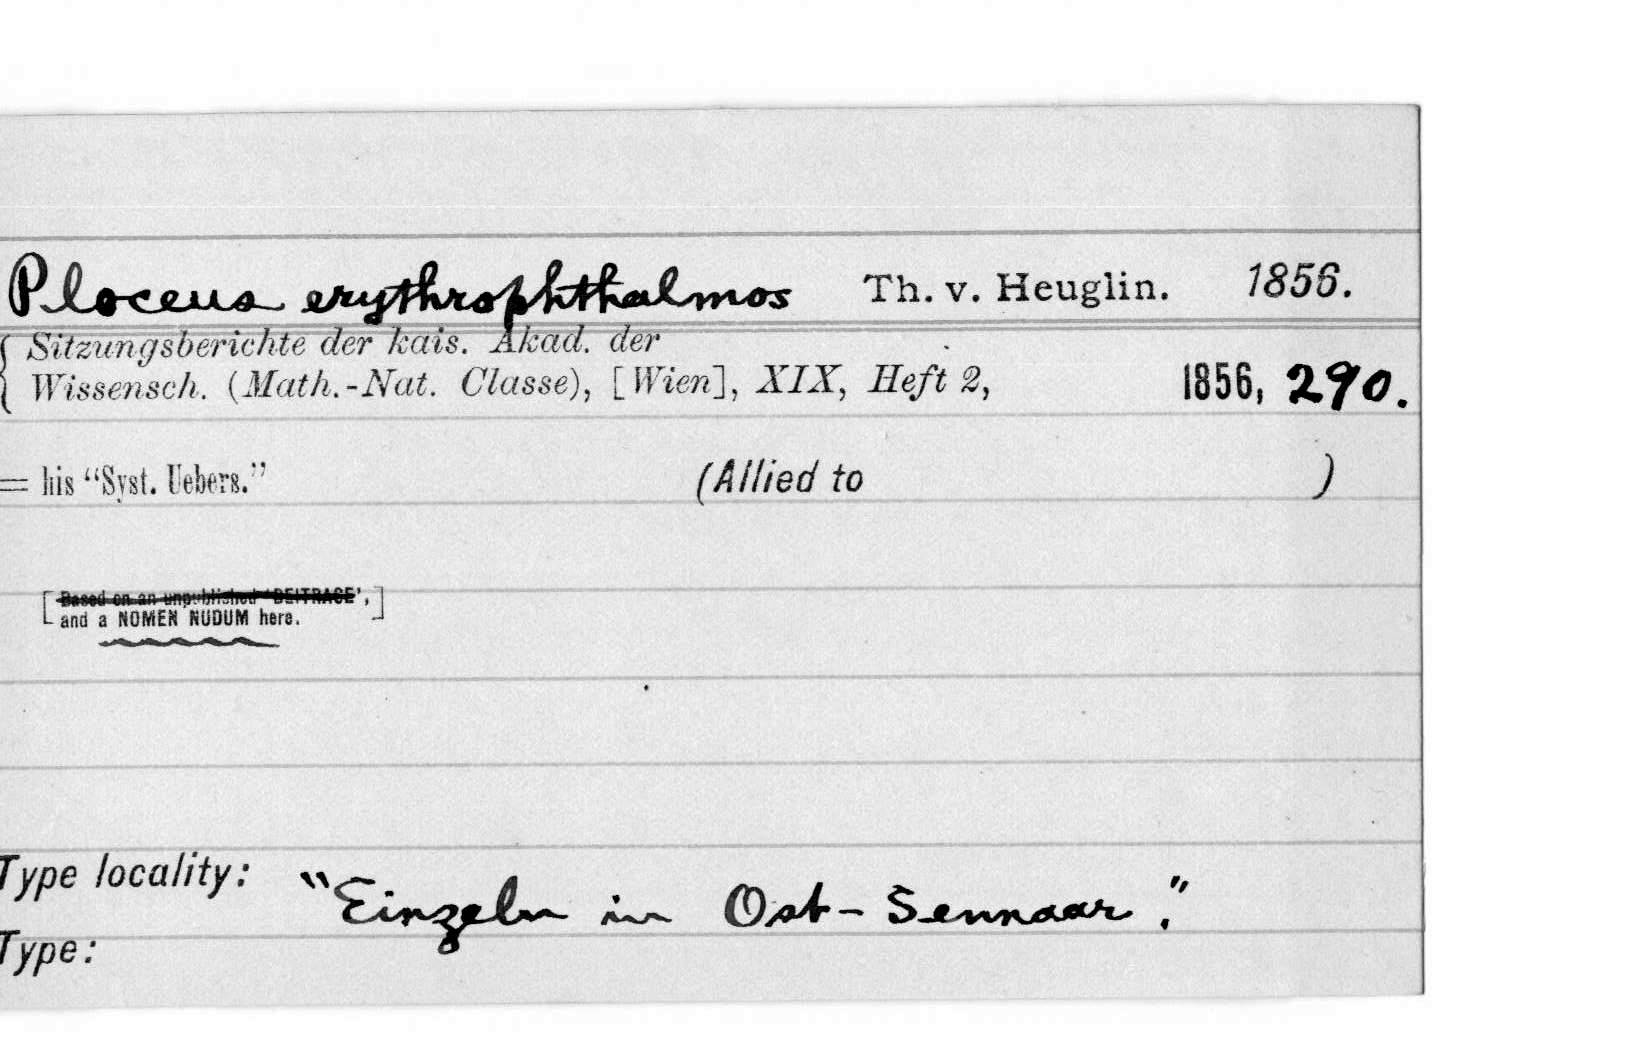 Ploceus erythrophthalmos Th. v. Heuglin. 1856.
Sitzungsberichte der kais. Akad. der
Wissensch. (Math.-Nat. Classe), [Wien], XIX, Heft 2, 1856, 290.
= his "Syst. Uebers." (Allied to )
[Based on an unpublished 'BEITRAGE',
and a NOMEN NUDUM here.]
Type locality: "Einzeln in Ost-Sennaar."
Type: